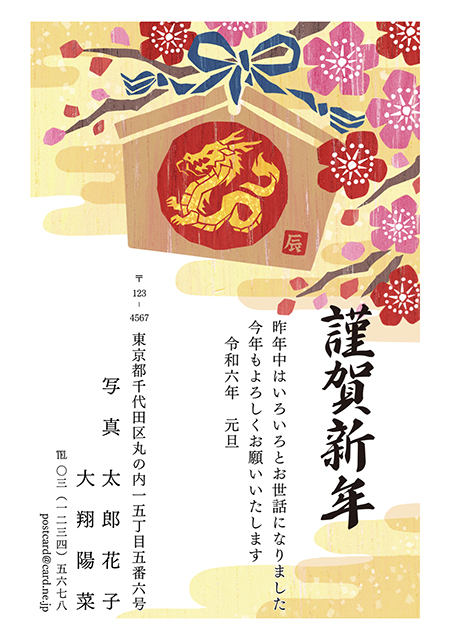 辰
謹賀新年
昨年中はいろいろとお世話になりました
今年もよろしくお願いいたします
令和六年　元旦
〒123-4567
東京都千代田区丸の内一五丁目五番六号
写真　太郎　花子
大翔　陽菜
℡〇三（一二三四）五六七八
postcard@card.ne.jp